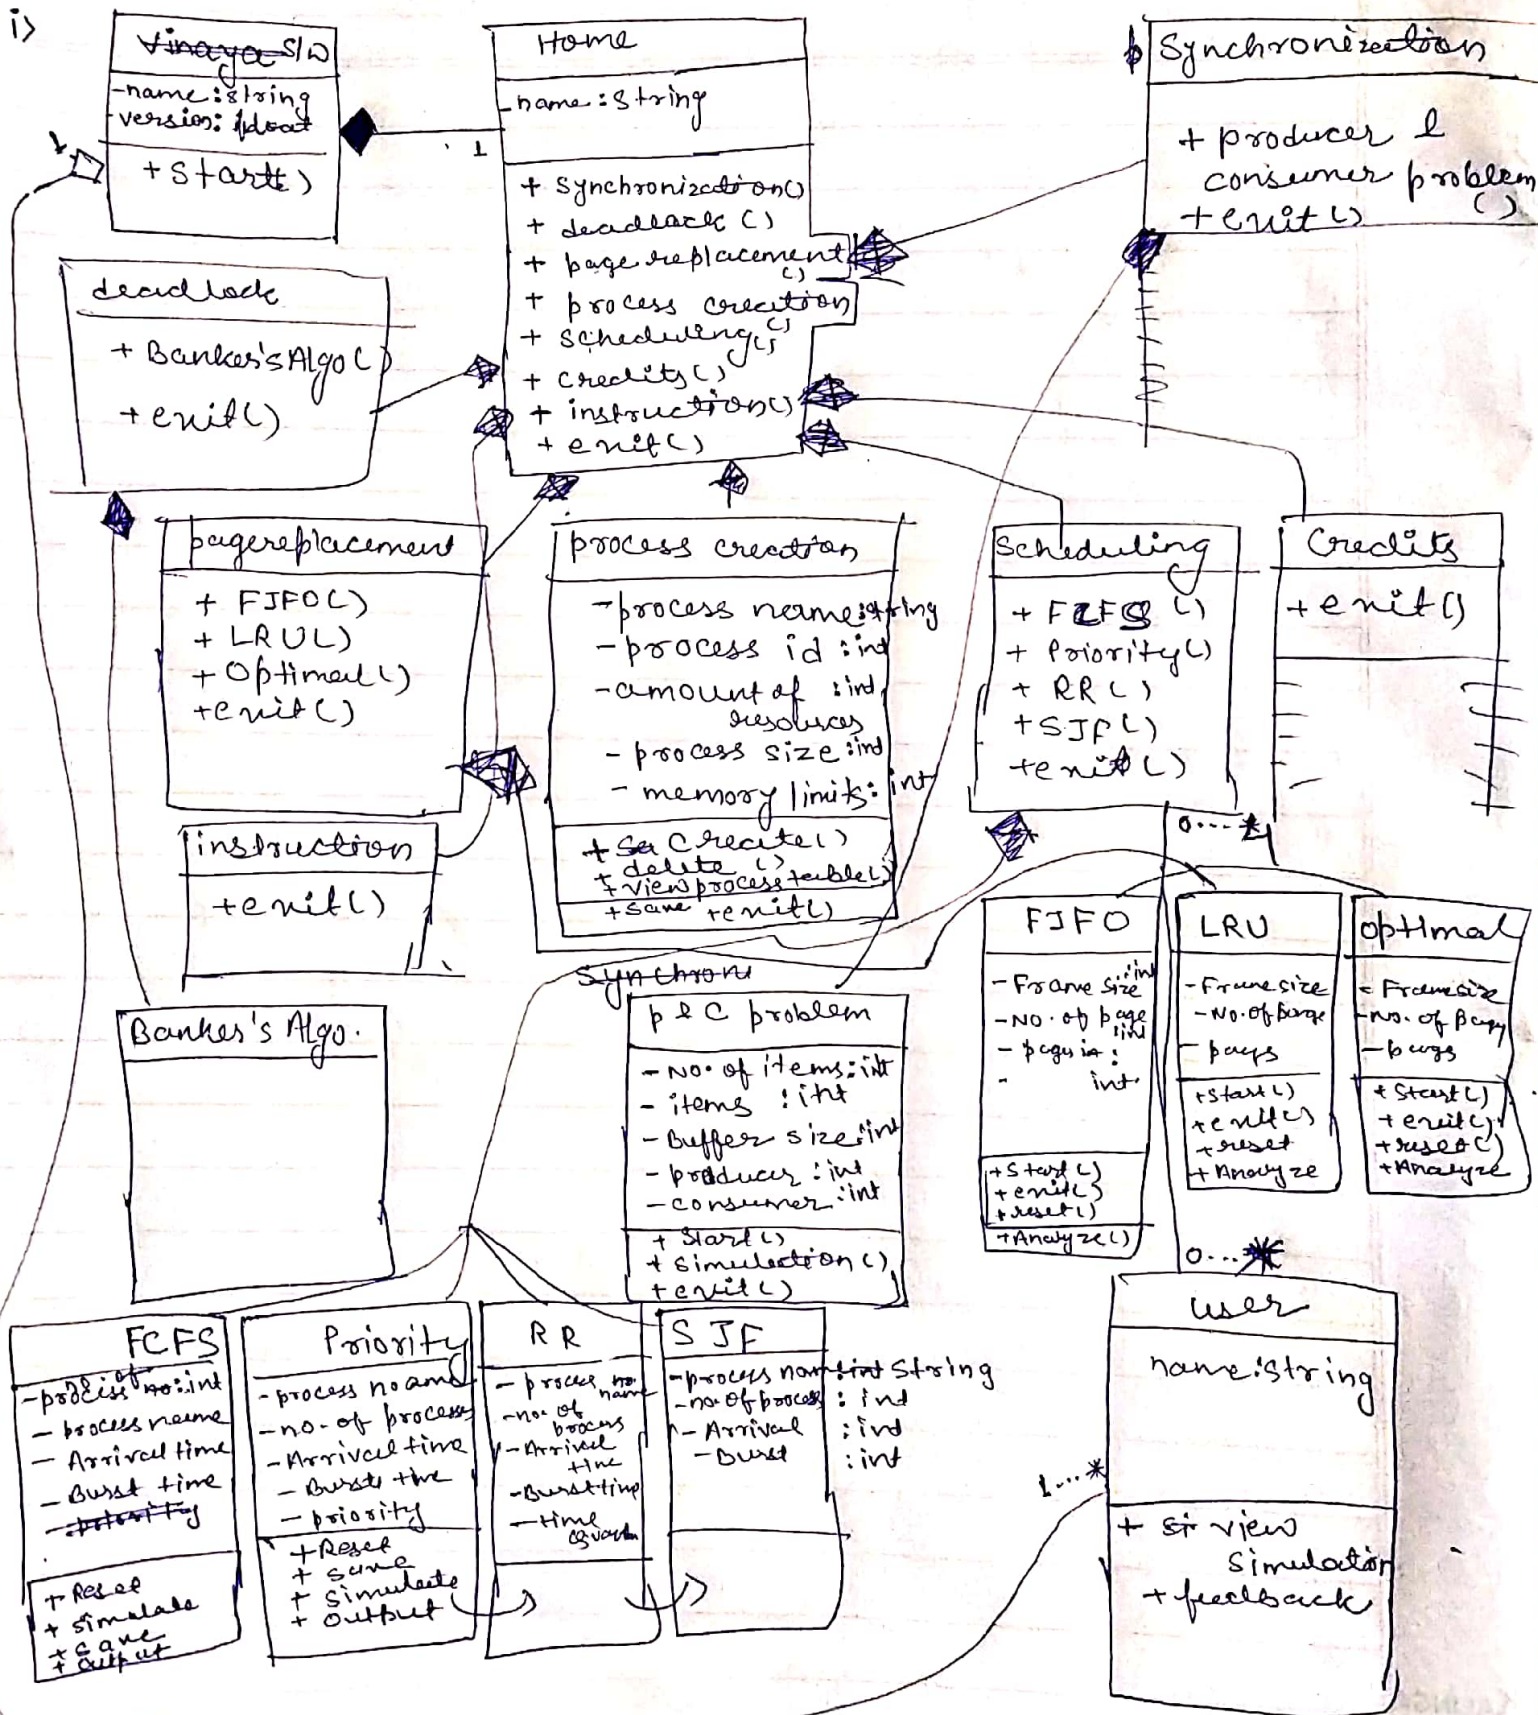 i)
Vinaya S/W
-name: string
version: float
+start()
1
Home
-name: string
1
+ synchronization()
+ deadlack ()
+ page replacement
()
+ process creation
()
+ scheduling()
+ credits()
+ instruction()
+ exit()
Synchronization
+ producer &
consumer problem
()
+ exit()
deadlock
+ Banker's Algo()
+ exit()
pagereplacement
+ FIFO()
+ LRU()
+ Optimal()
+exit()
process creation
-process name:string
-process id : int
-amount of : int
resources
- process size :int
- memory limits: int
+ create()
+ delete ()
+ view process table()
+ save +exit()
Scheduling
+ FCFS ()
+ Priority()
+ RR ()
+ SJF()
+exit()
0....*
Credits
+ exit()
instruction
+exit()
Synchroni
FIFO
- Frame size :int
- NO. of page :int
- pages in :
- int
+Start()
+exit()
+reset()
+Analyze()
LRU
- Frame size
- No. of page
- pages
+start()
+exit()
+reset
+Analyze
optimal
- Frame size
-no. of page
- pages
+ Start()
+ exit()
+reset()
+Analyze
Banker's Algo.
p & C problem
- No. of items: int
- items : int
- Buffer size:int
- producer : int
- consumer : int
+ Start()
+ simulation ()
+ exit()
0...*
user
name:string
1...*
+ view
simulation
+ feedback
FCFS
-process no:int
of
- process name
- Arrival time
- Burst time
- priority
+ Reset
+ simulate
+ save
+ output
Priority
- process noame
- no. of process
- Arrival time
- Burst time
- priority
+ Reset
+ save
+ simulate
+ output
RR
- process no
name
-no. of
process
- Arrival
time
-Burst time
- time
SJF
-process name int String
-no of process : int
- Arrival : int
- Burst : int